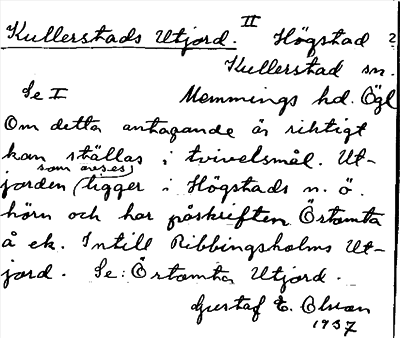 Kullerstads Utjord. II Högstad ?
Kullerstad sn.
Se I Memmings hd. Ögl
Om detta antagande är riktigt
kan ställas i tvivelsmål. Ut-
som avses
jorden ligger i Högstads n. ö.
hörn och har påskriften Örtomta
å ek. Intill Ribbingsholms Ut-
jord. Se: Örtomta Utjord.
Gustaf E. Olsson
1937